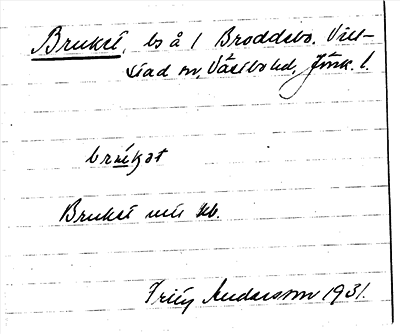 Bruket, bs å 1 Broddebo. Vill-
stad sn, Västbo hd, Jönk. l.
brúkət
Bruket utu kb.
Fritz Andersson 1931.